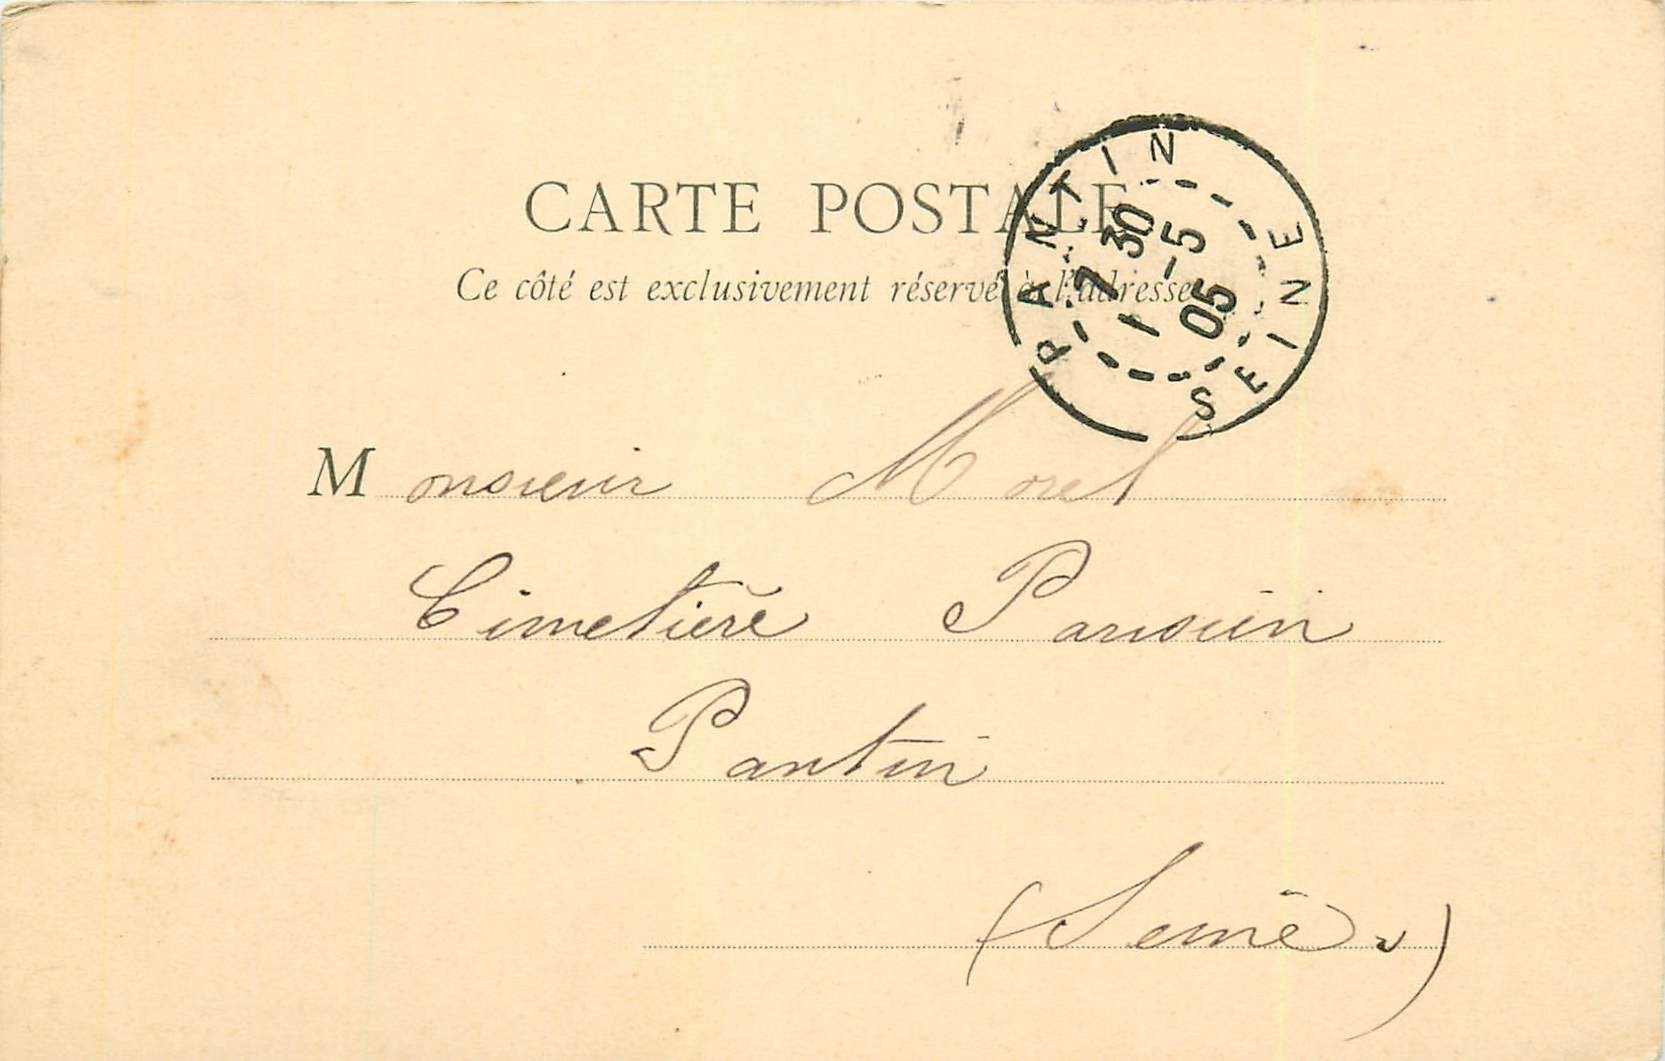 CARTE POSTALE
Ce côté est exclusivement réservé à l'adresse
PANTIN
7 30
1 -5
05
SEINE
Monsieur Morel
Cimetière Parisien
Pantin
(Seine)